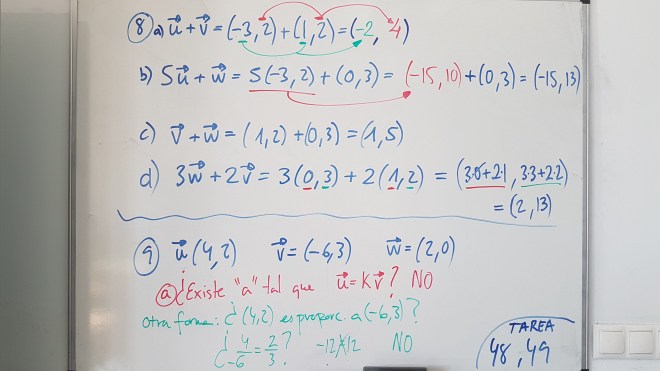 8 a) u⃗ + v⃗ = (-3, 2) + (1, 2) = (-2, 4)
b) 5u⃗ + w⃗ = 5(-3, 2) + (0, 3) = (-15, 10) + (0, 3) = (-15, 13)
c) v⃗ + w⃗ = (1, 2) + (0, 3) = (1, 5)
d) 3w⃗ + 2v⃗ = 3(0, 3) + 2(1, 2) = (3·0+2·1, 3·3+2·2)
= (2, 13)
9 u⃗ (4, 2) v⃗ = (-6, 3) w⃗ = (2, 0)
a) ¿Existe "a" tal que u⃗ = K v⃗? NO
Otra forma: ¿(4,2) es proporc. a (-6,3)?
¿ 4/-6 = 2/3 ? -12 ≠ 12 NO
TAREA
48, 49